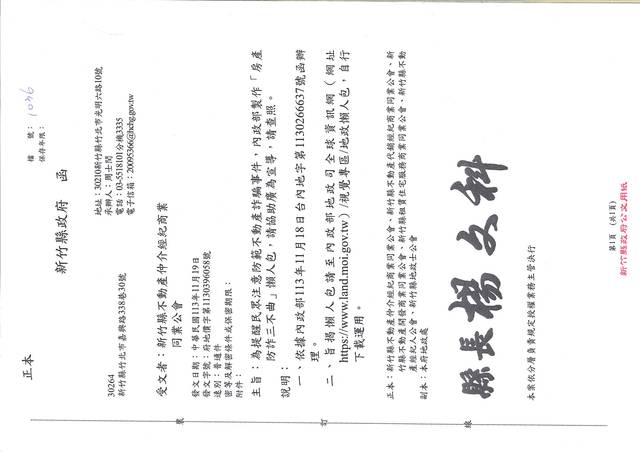 檔　號：1036
保存年限：
正本
新竹縣政府　函
地址：30210新竹縣竹北市光明六路10號
承辦人：周士閔
電話：03-5518101分機3335
電子信箱：20095366@hchg.gov.tw
30264
新竹縣竹北市嘉興路338巷30號
受文者：新竹縣不動產仲介經紀商業
同業公會
發文日期：中華民國113年11月19日
發文字號：府地價字第1130396058號
速別：普通件
密等及解密條件或保密期限：
附件：
主旨：為提醒民眾注意防範不動產詐騙事件，內政部製作「房產
防詐三不曲」懶人包，請協助廣為宣導，請查照。
說明：
一、依據內政部113年11月18日台內地字第1130266637號函辦
理。
二、旨揭懶人包請至內政部地政司全球資訊網（網址
https://www.land.moi.gov.tw）/視覺專區/地政懶人包，自行
下載運用。
正本：新竹縣不動產仲介經紀商業同業公會、新竹縣不動產代銷經紀商業同業公會、新
竹縣不動產開發商業同業公會、新竹縣租賃住宅服務商業同業公會、新竹縣不動
產經紀人公會、新竹縣地政士公會
副本：本府地政處
縣長楊文科
本案依分層負責規定授權業務主管決行
裝
訂
線
第1頁　（共1頁）
新竹縣政府公文用紙